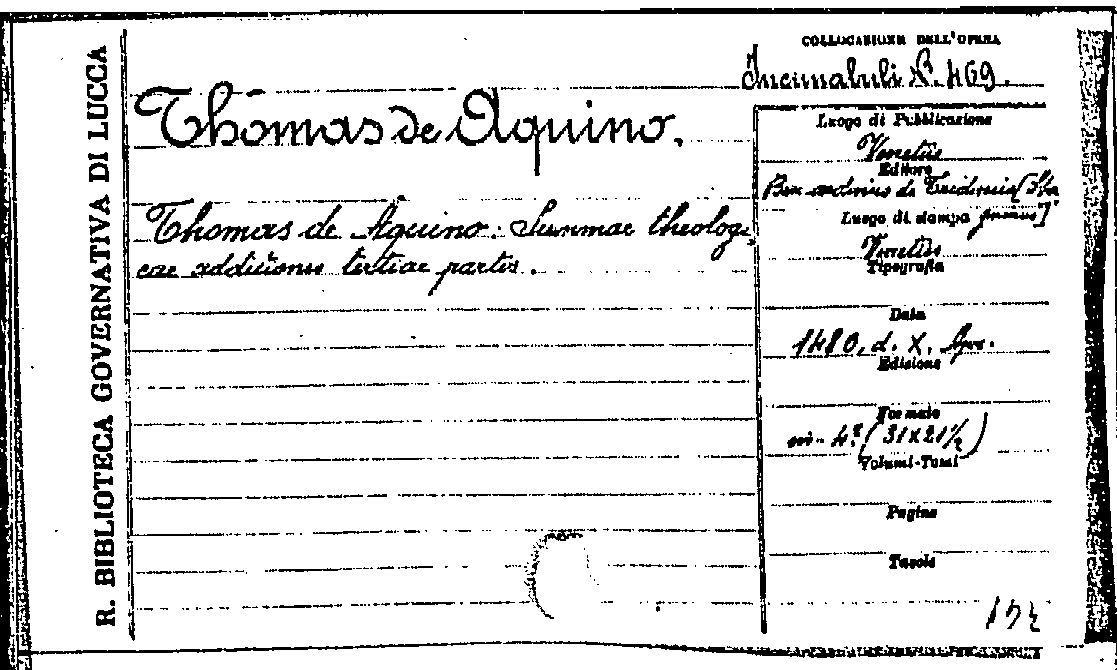 R. BIBLIOTECA GOVERNATIVA DI LUCCA
COLLOCAZIONE DELL'OPERA
Incunabuli N. 469.
Thomas de Aquino.
Thomas de Aquino. Summae theologi
cae additiones tertiae partis.
Luogo di Pubblicazione
Venetiis
Editore
de Tridino
Luogo di stampa
Venetiis
Tipografia
Data
1480, d. X.
Edizione
Formato
in-4º (31x21½)
Volumi-Tomi
Pagine
Tavole